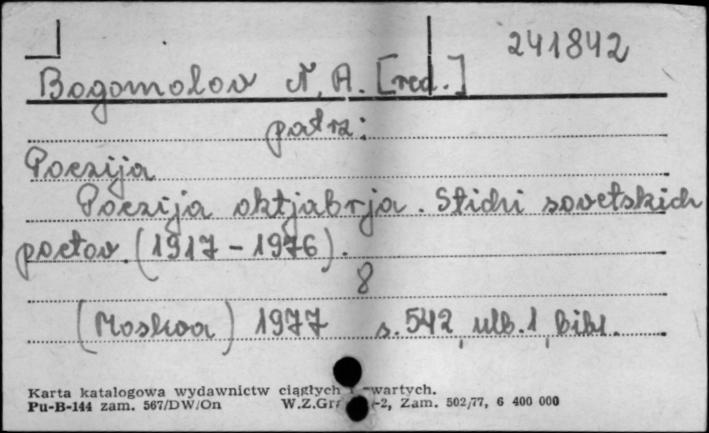 241842
Bogomolov N. A. [red.]
patrz:
Poezija
Poezija oktjabrja. Stichi sovetskich
poetov. (1917-1976).
8
(Moskva) 1977 s. 542, ulb. 1, bibl.
Karta katalogowa wydawnictw ciągłych i zwartych.
Pu-B-144 zam. 567/DW/On W.Z.Graf. -2, Zam. 502/77, 6 400 000